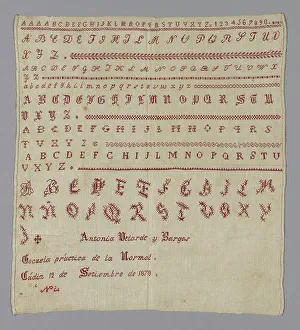 A A A A B C D E F G H I J K L M N O P Q R S T U V X Y Z 1 2 3 4 5 6 7 8 9 0
A B C D E F G H I J L M N O P Q R S T U V
X Y Z
A B C D E F G H I J K L M N O P Q R S T U V X Y Z
a b c d e f g h i j k l m n o p q r s t u v x y z
A B C D E F G H I J L M N O P Q R S T U
V X Y Z
A B C D E F G H I J K L M N O P Q R S
T U V X Y Z
A B C D E F G H I J L M N O P Q R S T U
V X Y Z
A B C D E F G H I J L M
N Ñ O P Q R S T U V X Y
Z
Antonia Velarde y Vargas
Escuela práctica de la Normal.
Cádiz 12 de Setiembre de 1878